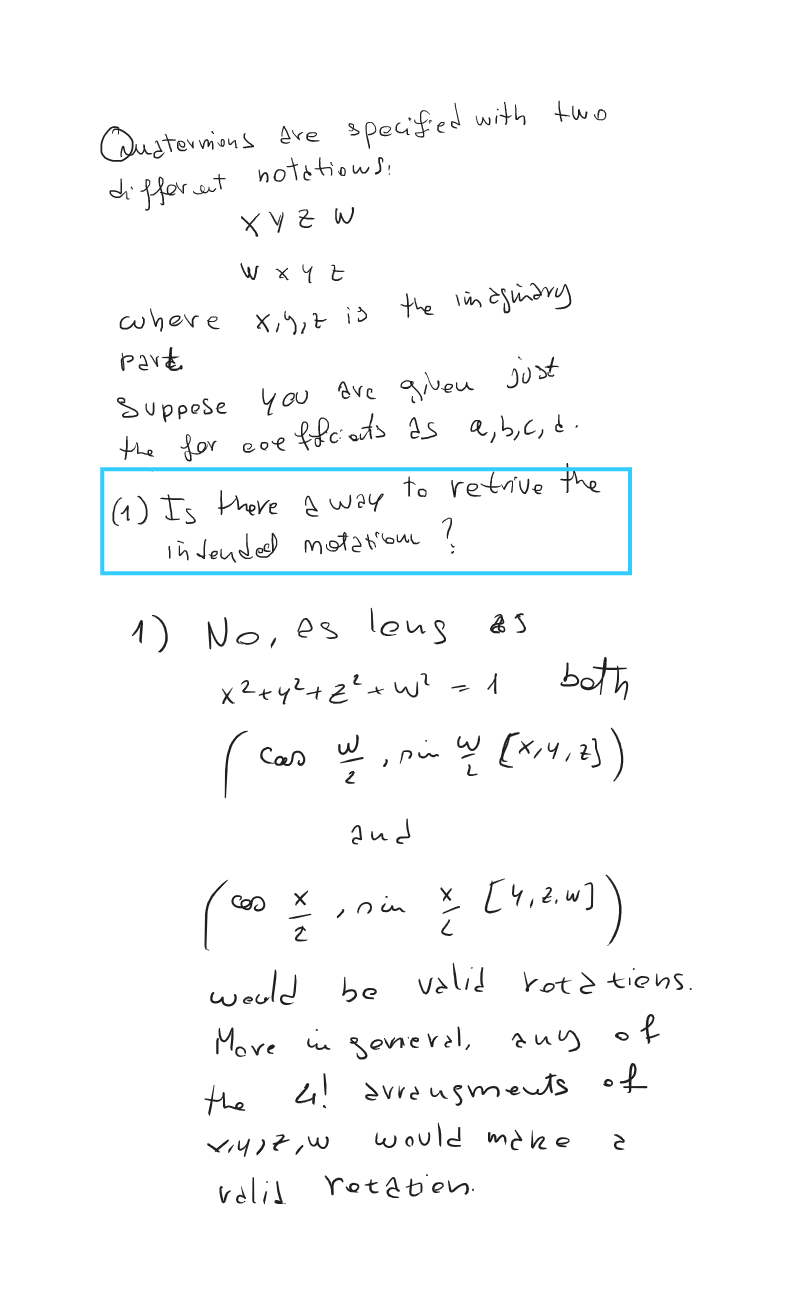 Quaternions are specified with two
different notations:
X Y Z W
W X Y Z
where x,y,z is the imaginary
part
Suppose you are given just
the for coeffcients as a,b,c,d.
(1) Is there a way to retrive the
intended notation?
1) No, as long as
x²+y²+z²+w² = 1 both
(cos w/2, sin w/2 [x,y,z])
and
(cos x/2, sin x/2 [y,z,w])
would be valid rotations.
More in general, any of
the 4! arrangments of
x,y,z,w would make a
valid rotation.